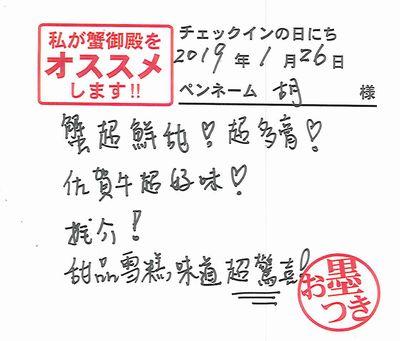 私が蟹御殿を
オススメ
します!!
チェックインの日にち
2019年1月26日
ペンネーム 胡 様
蟹超鮮甜!超多膏!
佐賀牛超好味!
推介!
甜品雪糕,味道超驚喜!
お墨つき